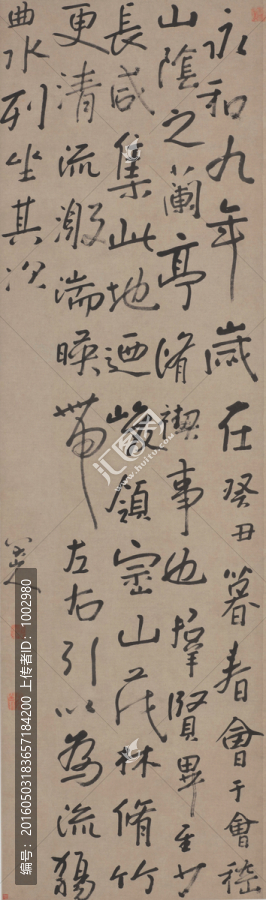 永和九年歲在癸丑暮春會于會稽
山陰之蘭亭脩禊事也羣賢畢至少
長咸集此地迺峻領崇山茂林脩竹
更清流激湍暎帶左右引以為流觴
曲水列坐其次
八大山人
编号：20160503183657184200 上传者ID：1002980